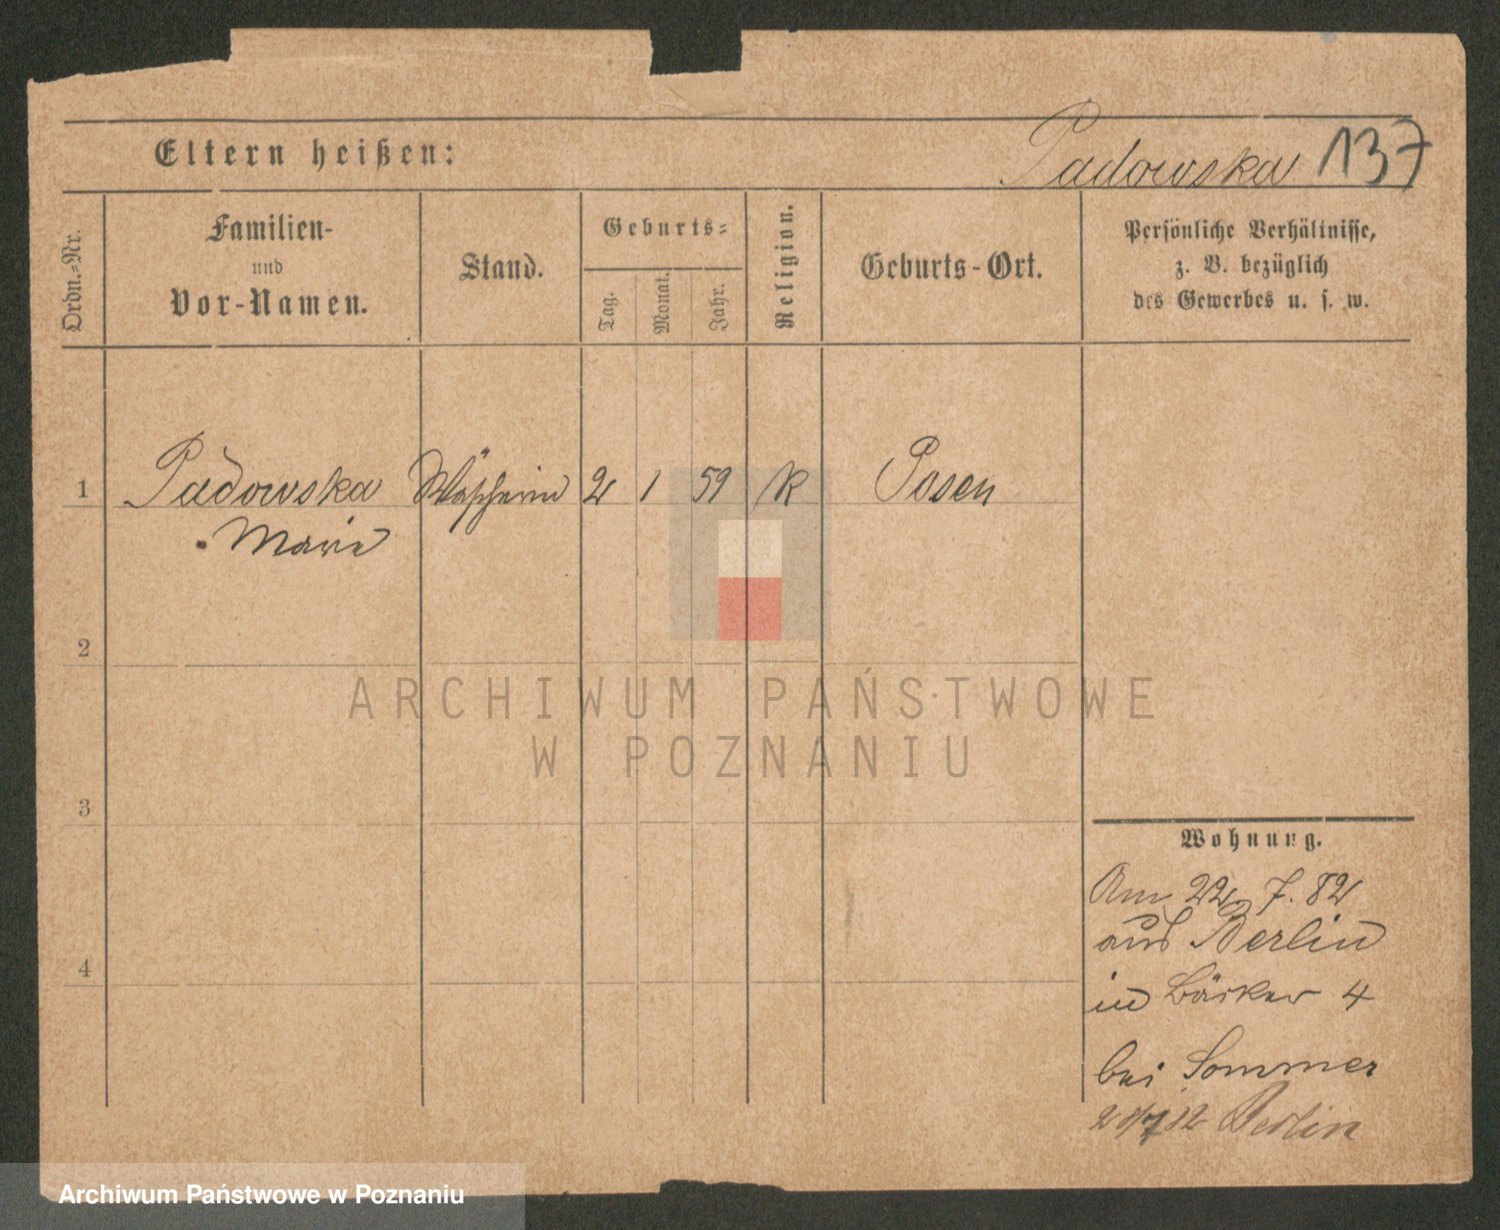 Eltern heißen:
Padowska 137
Ordn.-Nr.
Familien-
und
Vor-Namen.
Stand.
Geburts-
Tag.
Monat.
Jahr.
Religion.
Geburts-Ort.
Persönliche Verhältnisse,
z. B. bezüglich
des Gewerbes u. s. w.
1 Padowska Wäscherin 2 1 59 K Posen
Marie
2
3
4
ARCHIWUM PAŃSTWOWE
W POZNANIU
Wohnung.
Am 22. 7. 82
aus Berlin
in Bäcker 4
bei Sommer
28/7 82 Berlin
Archiwum Państwowe w Poznaniu